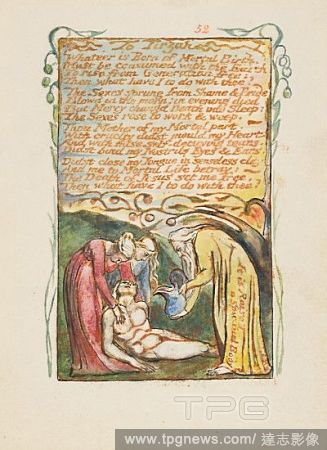 52
To Tirzah
Whate'er is Born of Mortal Birth,
Must be consumed with the Earth
To rise from Generation free;
Then what have I to do with thee?
The Sexes sprung from Shame & Pride
Blow'd in the morn: in evening died
But Mercy changd Death into Sleep;
The Sexes rose to work & weep.
Thou Mother of my Mortal part
With cruelty didst mould my Heart.
And with false self-decieving tears,
Didst bind my Nostrils Eyes & Ears.
Didst close my Tongue in senseless clay
And me to Mortal Life betray:
The Death of Jesus set me free,
Then what have I to do with thee?
It is Raised
a Spiritual Body
TPG
www.tpgnews.com/達志影像